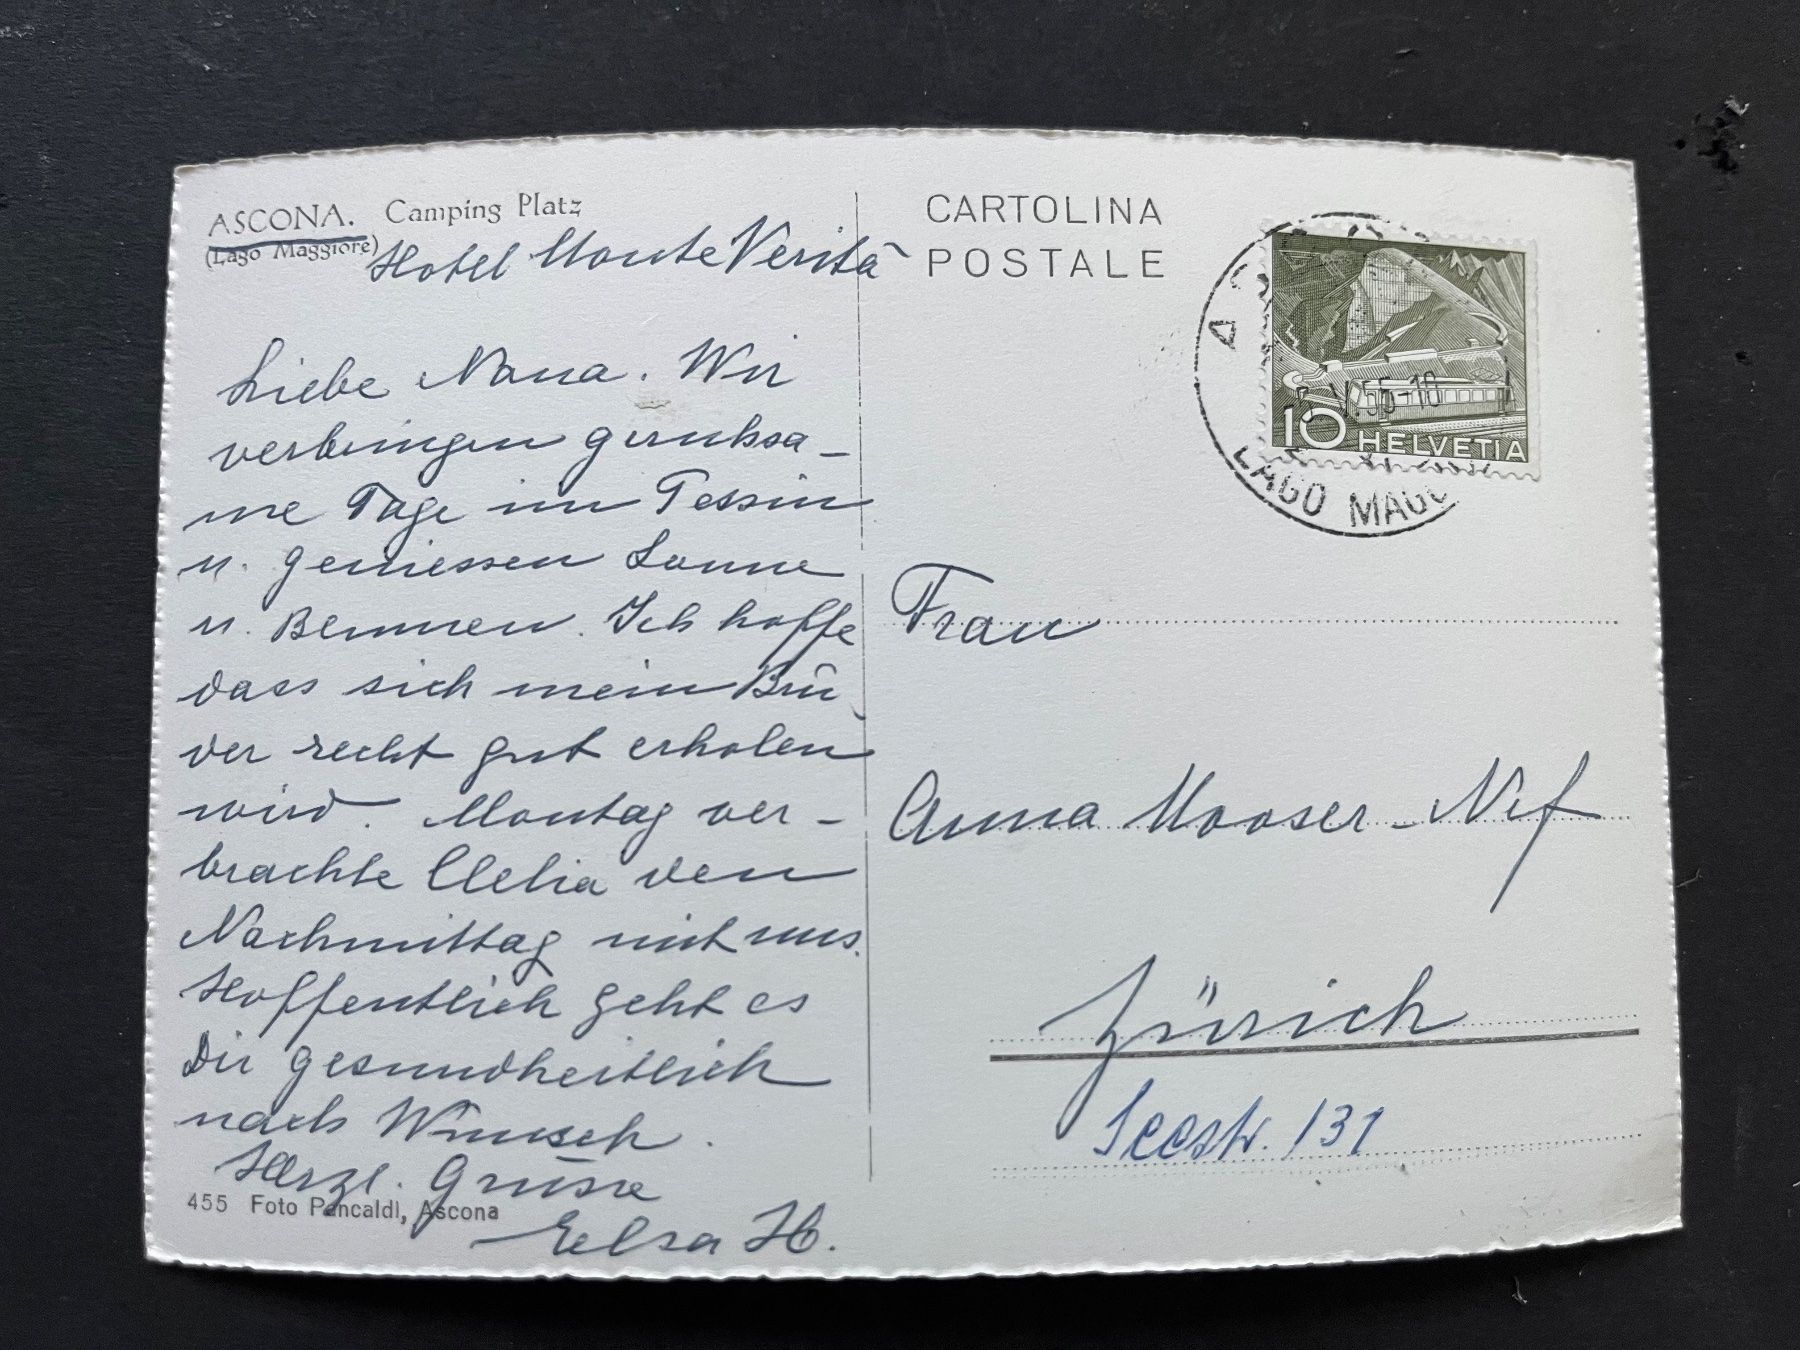 ASCONA. Camping Platz
(Lago Maggiore)
Hotel Monte Verità
Liebe Nana. Wir
verbringen geruhsa-
me Tage im Tessin
u. geniessen Sonne
u. Blumen. Ich hoffe
dass sich mein Bru
der recht gut erholen
wird. Montag ver-
brachte Clelia den
Nachmittag mit uns.
Hoffentlich geht es
Dir gesundheitlich
nach Wunsch.
Herzl. Grüsse
Elsa H.
455 Foto Pancaldi, Ascona
CARTOLINA
POSTALE
10 HELVETIA
LAGO MAGG
Frau
Anna Mooser-Nef
Zürich
Seestr. 131